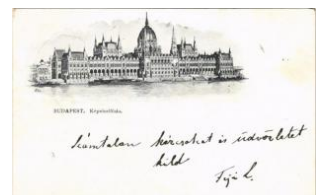 BUDAPEST. Képviselőház.
Számtalan kézcsókot és üdvözletet
küld